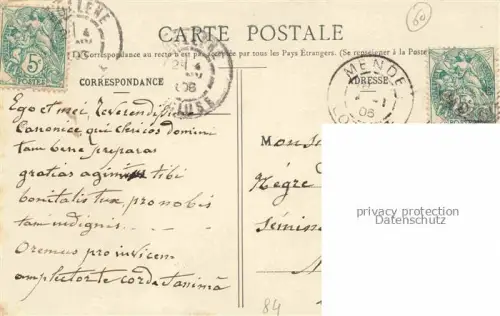 60
CARTE POSTALE
La Correspondance au recto n'est pas acceptée par tous les Pays Étrangers. (Se renseigner à la Poste)
CORRESPONDANCE
ADRESSE
5c
POSTES
LLENE
4
06
VAUCLUSE
MENDE
06
LOZ
Ego et mei, Reverendissime
Canonice qui clericos domini
tam bene preparas
gratias agimus tibi
bonitatis tuæ pro nobis
tam indignis . . . .
Oremus pro invicem
amplector te corde et animâ
Monsieur
Nègre
Séminaire
privacy protection
Datenschutz
84